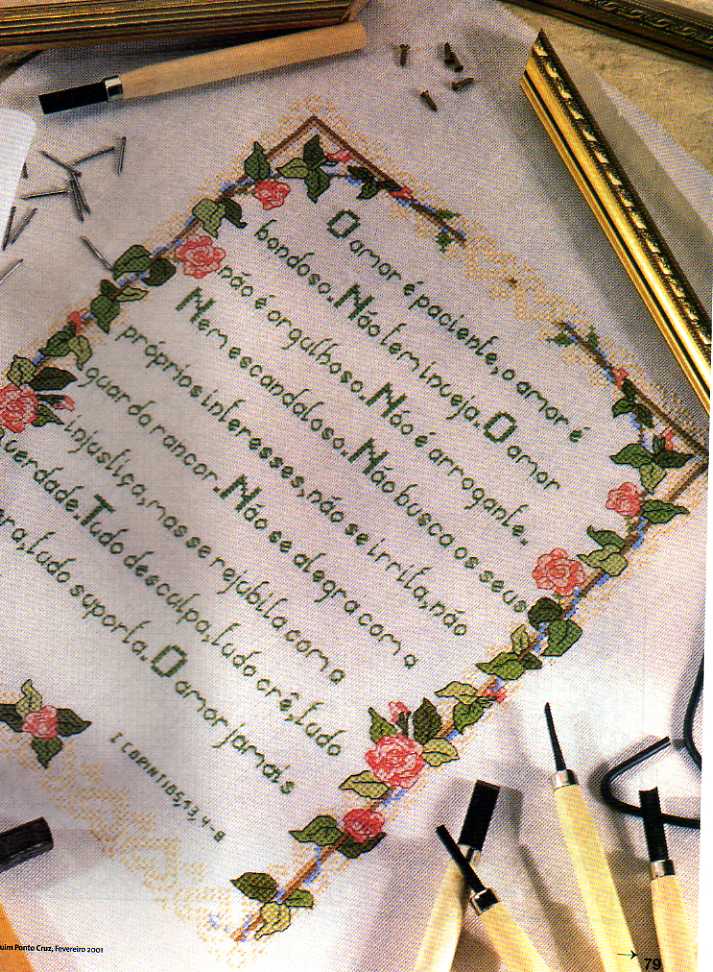 O amor é paciente, o amor é
bondoso. Não tem inveja. O amor
não é orgulhoso. Não é arrogante.
Nem escandaloso. Não busca os seus
próprios interesses, não se irrita, não
guarda rancor. Não se alegra com a
injustiça, mas se rejubila com a
verdade. Tudo desculpa, tudo crê, tudo
tudo suporta. O amor jamais
I CORINTIOS 13,4-8
Ponto Cruz, Fevereiro 2001
79